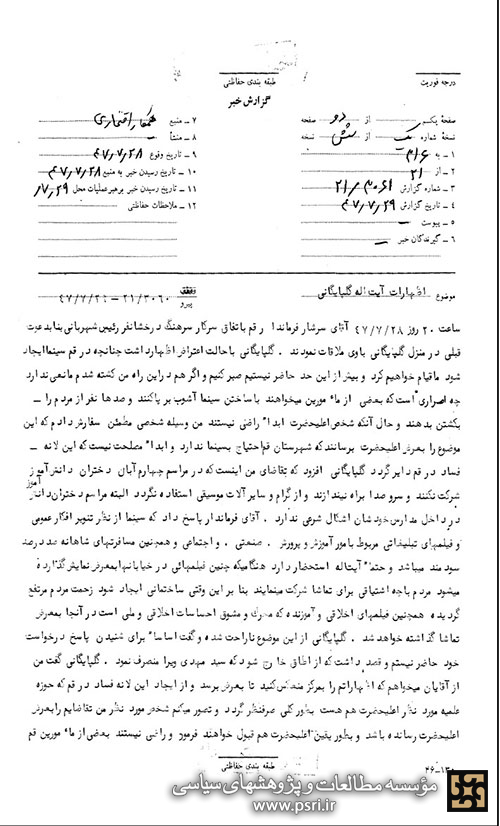 طبقه بندی حفاظتی
درجه فوریت
گزارش خبر
صفحه یکم از دو صفحه
نسخه شماره یک از شش نسخه
۱ ـ به ۳۱۶
۲ ـ از ۲۱
۳ ـ شماره گزارش ۲۱/۳۰۶۱
۴ ـ تاریخ گزارش ۴۷٫۷٫۲۹
۵ ـ پیوست
۶ ـ گیرندگان خبر
۷ ـ منبع همکار افتخاری
۸ ـ منشأ
۹ ـ تاریخ وقوع ۴۷٫۷٫۲۸
۱۰ ـ تاریخ رسیدن خبر به منبع ۴۷٫۷٫۲۸
۱۱ ـ تاریخ رسیدن خبر برهبر عملیات محل ۷٫۲۹
۱۲ ـ ملاحظات حفاظتی
موضوع اظهارات آیت اله گلپایگانی
پیرو ۲۱/۳۰۶۰ ـ ۴۷/۷/۲
ساعت ۲۰ روز ۴۷/۷/۲۸ آقای سرشار فرماندار قم باتفاق سرکار سرهنگ درخشانفر رئیس شهربانی بنا بدعوت
قبلی در منزل گلپایگانی باوی ملاقات نمودند . گلپایگانی با حالت اعتراض اظهار داشت چنانچه در قم سینما ایجاد
شود ما قیام خواهیم کرد و بیش از این حد حاضر نیستیم صبر کنیم و اگر هم در این راه من کشته شدم مانعی ندارد
چه اصراری است که بعضی از ماٴمورین میخواهند با ساختن سینما آشوب بر پا کنند و صدها نفر از مردم را ـ
بکشتن بدهند و حال آنکه شخص اعلیحضرت ابداً راضی نیستند من وسیله شخصی مطمئن سفارش دادم که این
موضوع را بعرض اعلیحضرت برسانند که شهرستان قم احتیاج بسینما ندارد و ابداً مصلحت نیست که این لانه ـ
فساد در قم دایر گردد گلپایگانی افزود که تقاضای من اینست که در مراسم چهارم آبان دختران دانش آموز
شرکت نکنند و سر و صدا براه نیندازند و از گرام و سایر آلات موسیقی استفاده نگردد البته مراسم دختران دانش آموز
در داخل مدارس خودشان اشکال شرعی ندارد . آقای فرماندار پاسخ داد که سینما از نظر تنویر افکار عمومی
و فیلمهای تبلیغاتی مربوط بامور آموزش و پرورش . صنعتی . و اجتماعی و همچنین مسافرتهای شاهانه صد درصد
سودمند میباشد و حتماً آیت اله استحضار دارد هنگامیکه چنین فیلمهائی در خیابانها بمعرض نمایش گذارده
میشود مردم با چه اشتیاقی برای تماشا شرکت مینمایند بنا بر این وقتی ساختمانی ایجاد شود زحمت مردم مرتفع
گردیده همچنین فیلمهای اخلاقی و آموزنده که محرک و مشوق احساسات اخلاقی و ملی است در آنجا بمعرض
تماشا گذاشته خواهد شد . گلپایگانی از این موضوع ناراحت شده و گفت اساساً برای شنیدن پاسخ درخواست
خود حاضر نیستم و قصد داشت که از اطاق خارج شود که سید مهدی ویرا منصرف نمود . گلپایگانی گفت من
از آقایان میخواهم که اظهاراتم را بمرکز منعکس کنید تا بعرض برسد و از ایجاد این لانه فساد در قم که حوزه
علمیه مورد نظر اعلیحضرت هم هست بطور کلی صرفنظر گردد و تصور میکنم شخص مورد نظر من تقاضایم را بعرض
اعلیحضرت رسانده باشد و بطور یقین اعلیحضرت هم قبول خواهند فرمود و راضی نیستند بعضی از ماٴمورین قم
طبقه بندی حفاظتی
مؤسسه مطالعات و پژوهشهای سیاسی
www.psri.ir